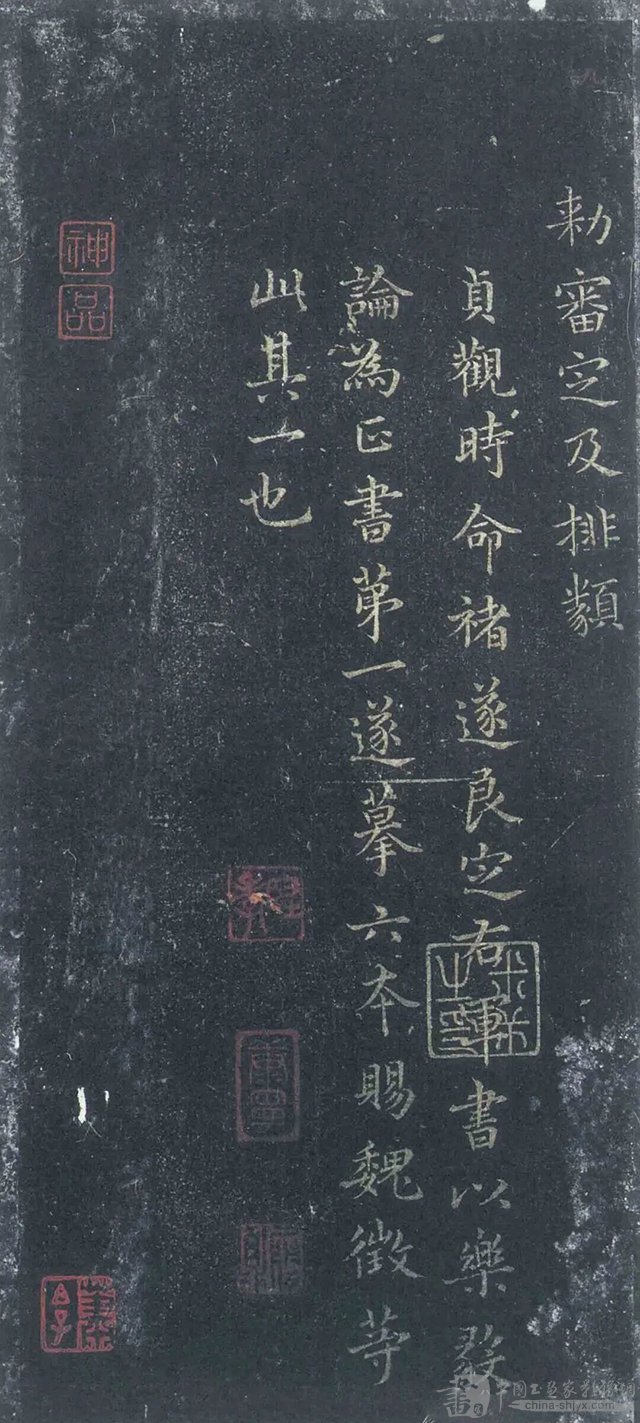 勑審定及排類
貞觀時命褚遂良定右軍書以樂毅
論為正書苐一遂摹六本賜魏徵等
此其一也
神品
china-shjyx.com